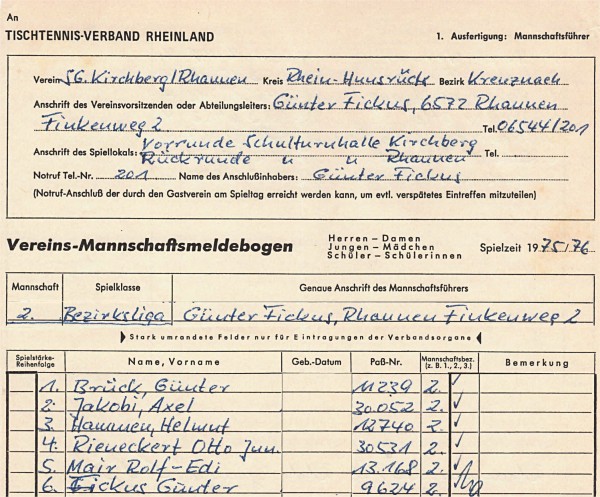 An
TISCHTENNIS-VERBAND RHEINLAND
1. Ausfertigung: Mannschaftsführer
Verein SG. Kirchberg/Rhaunen Kreis Rhein-Hunsrück Bezirk Kreuznach
Anschrift des Vereinsvorsitzenden oder Abteilungsleiters: Günter Fickus, 6572 Rhaunen
Finkenweg 2 Tel. 06544/201
Vorrunde Schulturnhalle Kirchberg
Anschrift des Spiellokals: Rückrunde " " Rhaunen Tel.
Notruf Tel.-Nr. 201 Name des Anschlußinhabers: Günter Fickus
(Notruf-Anschluß der durch den Gastverein am Spieltag erreicht werden kann, um evtl. verspätetes Eintreffen mitzuteilen)
Vereins-Mannschaftsmeldebogen
Herren – Damen
Jungen – Mädchen
Schüler – Schülerinnen
Spielzeit 1975/76
Mannschaft Spielklasse Genaue Anschrift des Mannschaftsführers
2. Bezirksliga Günter Fickus, Rhaunen Finkenweg 2
Stark umrandete Felder nur für Eintragungen der Verbandsorgane
Spielstärke-Reihenfolge Name, Vorname Geb.-Datum Paß-Nr. Mannschaftsbez. (z. B. 1., 2., 3.) Bemerkung
1. Brück, Günter 11239 2. ✓
2. Jakobi, Axel 30.052 2. ✓
3. Hammen, Helmut 12740 2. ✓
4. Rieneckert Otto Jun. 30531 2. ✓
5. Mair Rolf-Edi 13.168 2. ✓
6. Fickus Günter 9624 2.